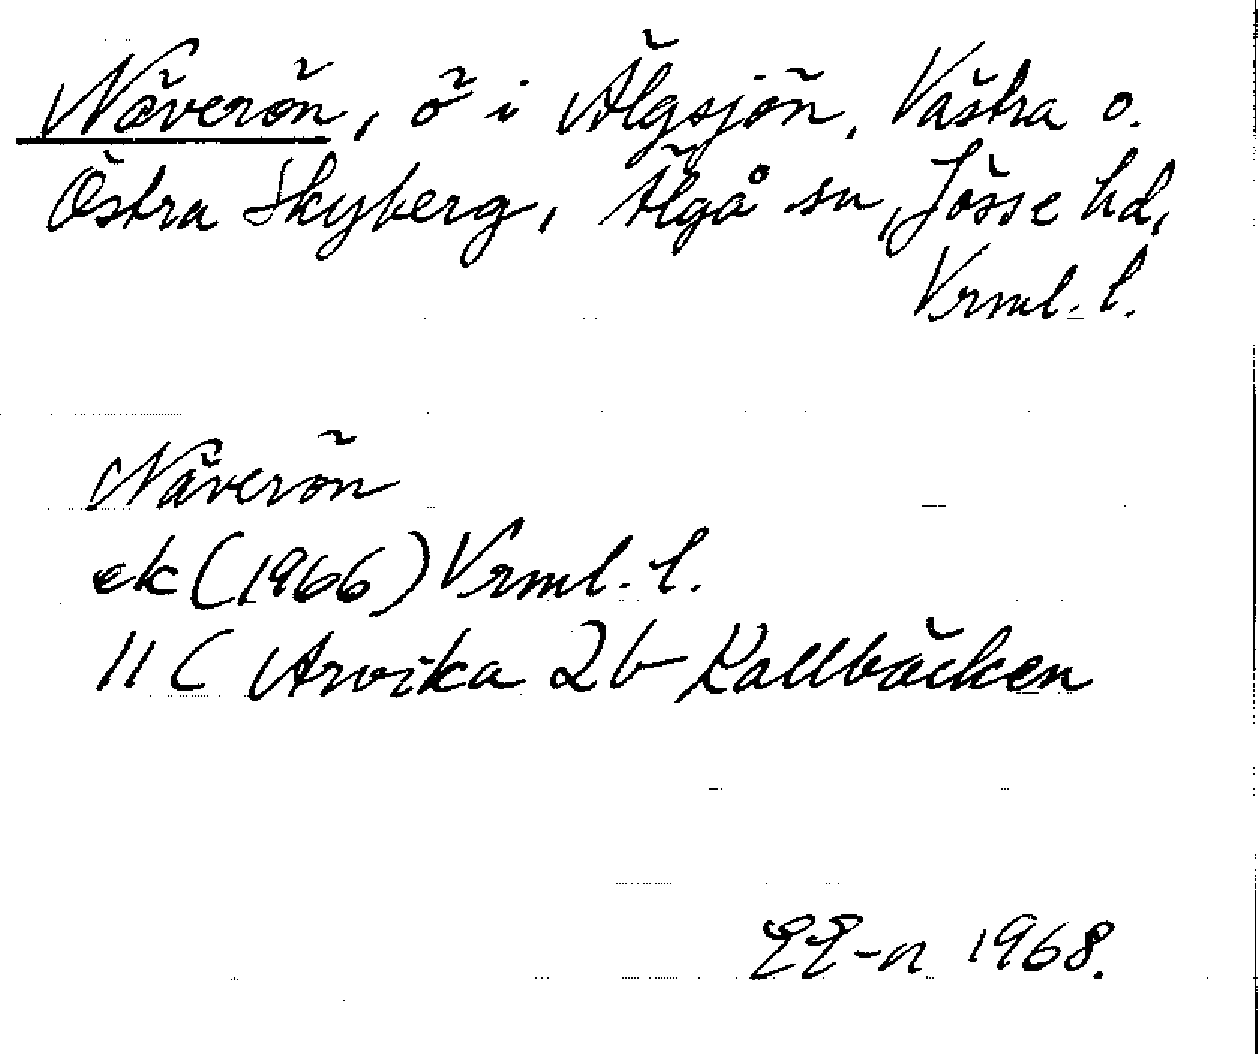 Näverön, ö i Älgsjön, Västra o.
Östra Skyberg, Älgå sn, Jösse hd,
Vrml. l.
Näverön
ek (1966) Vrml. l.
11 C Arvika 2b Kallbäcken
EE-n 1968.